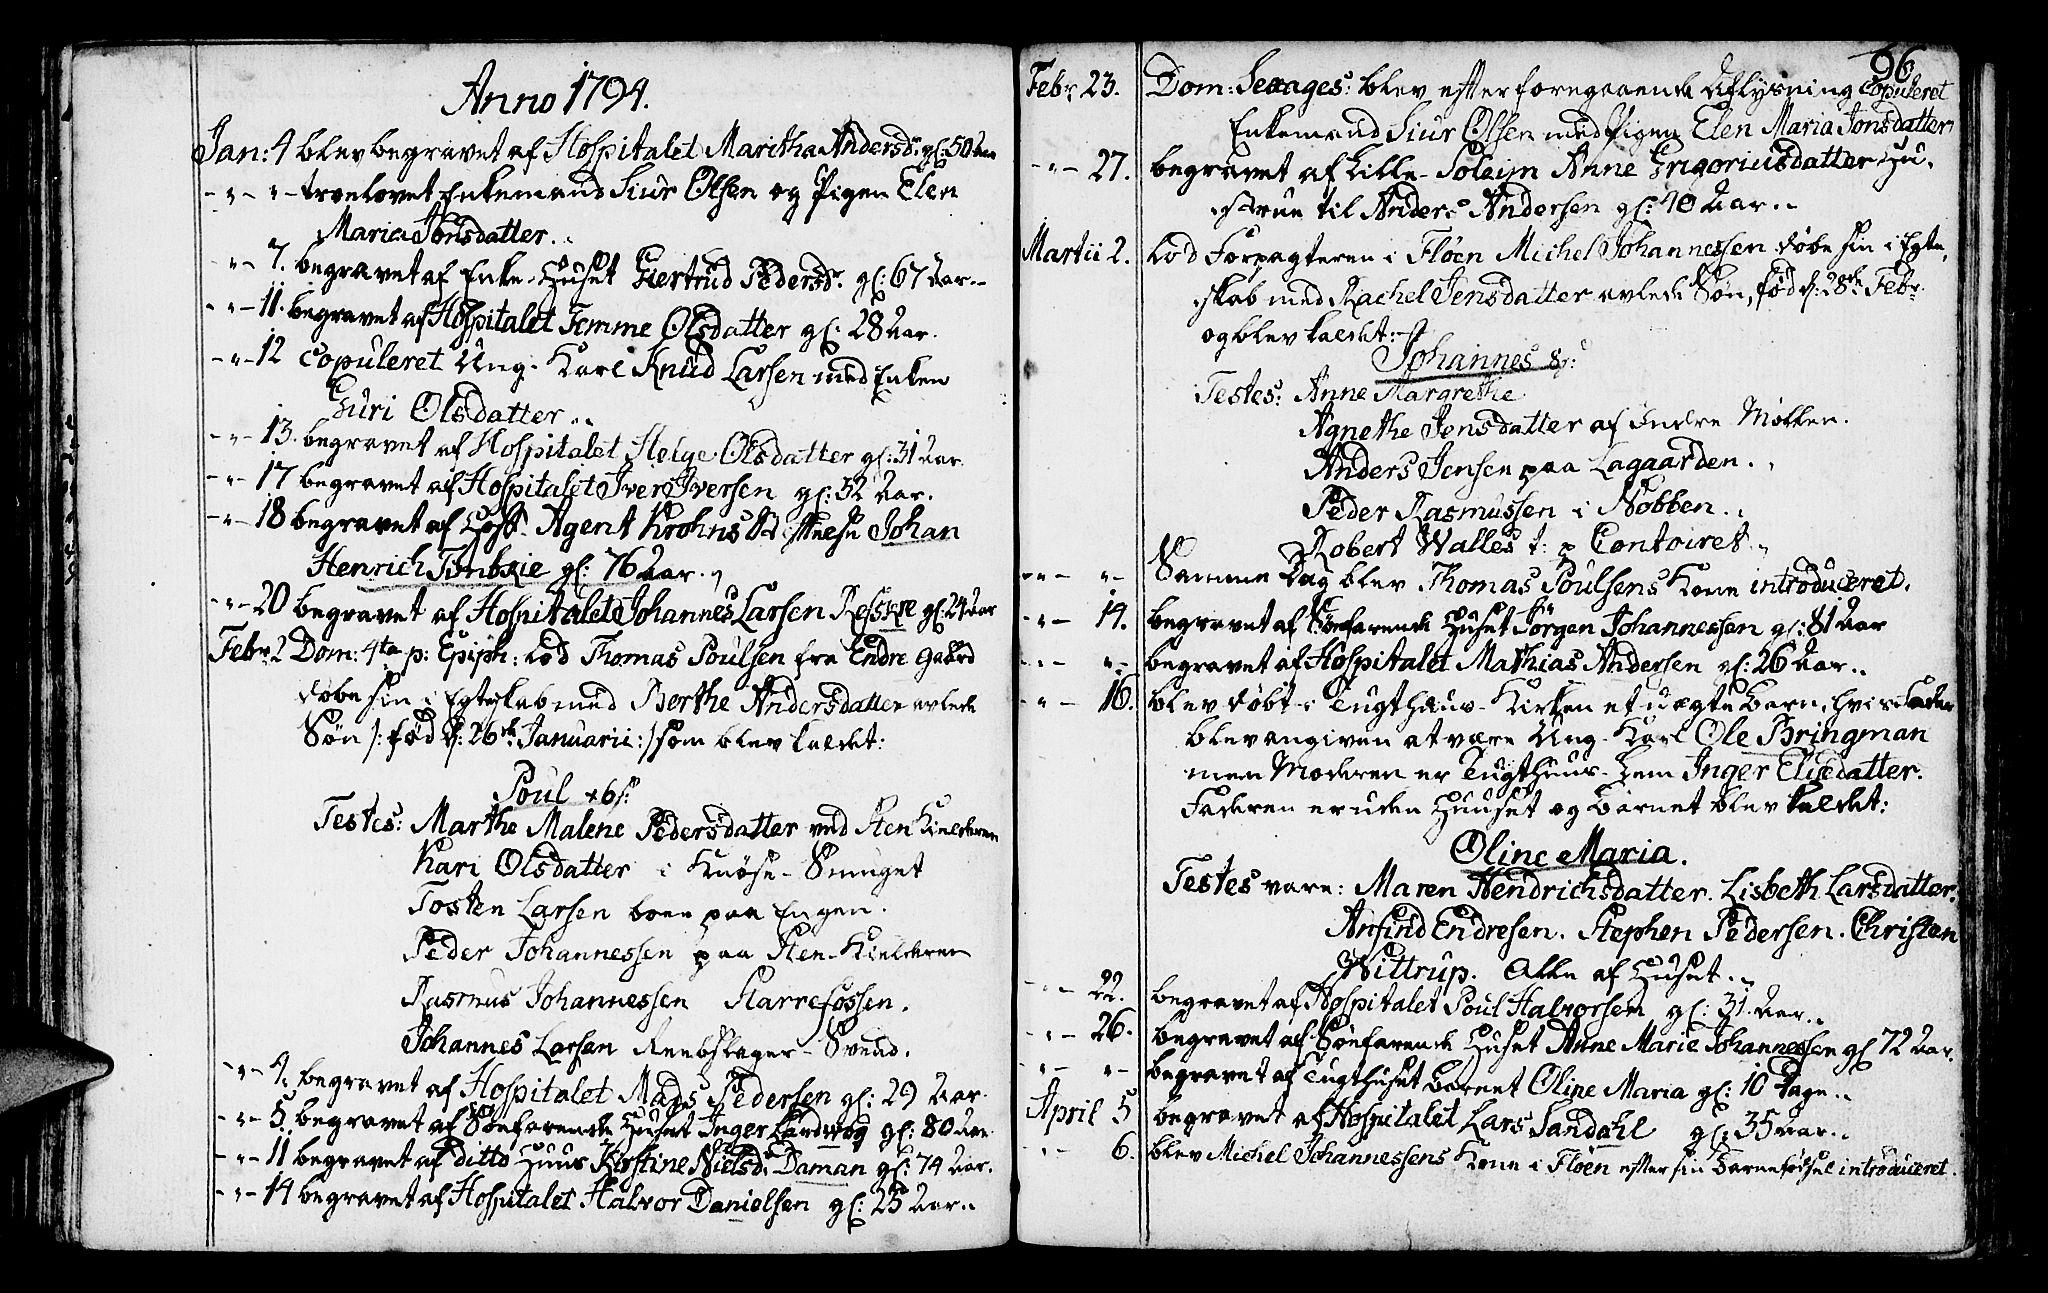 Anno 1794.
Jan: 4 blev begravet af Hospitalet Maritha Andersd.r gl: 50 aar
- " - " - troelovet Enkemand Siur Olsen og Pigen Elen
Maria Jonsdatter..
- " - 7. begravet af Enke-Huuset Giertrud Pedersd.r gl: 67 Aar..
- " - 11. begravet af Hospitalet Temme Olsdatter gl: 28 Aar.
- " - 12 Copuleret Ung-Karl Knud Larsen med Enken
Guri Olsdatter..
- " - 13. begravet af Hospitalet Helge Olsdatter gl: 31 Aar.
- " - 17 begravet af Hospitalet Iver Iversen gl: 52 Aar.
- " - 18 begravet af Agent Krohns Johan
Henrich gl: 76 Aar.
- " - 20 begravet af Hospitalet Johannes Larsen gl: 24 aar
Febr: 2 Dom: 4ta p: Epiph: lod Thomas Poulsen fra Endre Gaard
døbe sin i Egteskab med Berthe Andersdatter avlede
Søn /: fød d: 26de Januarii :/ som blev kaldet:
Poul
Testes: Marthe Malene Pedersdatter ved Steen Kielderen
Kari Olsdatter i Knøse-Smuget
Tosten Larsen boen paa Engen.
Peder Johannessen paa Sten-Kielderen
Rasmus Johannessen Starrefossen.
Johannes Larsen Reebslager-Svend.
- " - 4. begravet af Hospitalet Mads Pedersen gl: 29 Aar.
- " - 5. begravet af Søefarende Huset Inger gl: 80 Aar.
- " - 11 begravet af ditto Huus Kirstine Nielsd.r Daman gl: 74 Aar.
- " - 14 begravet af Hospitalet Halvor Danielsen gl: 25 Aar..
96
Febr: 23. Dom: Sexages: blev efter foregaaende Aflysning Copuleret
Enkemand Siur Olsen med Pigen Elen Maria Jonsdatter
- " - 27. begravet af Lille-Soleim Anne Grigoriusdatter Hu-
strue til Anders Andersen gl: 40 Aar..
Martii 2. Lod Forpagteren i Fløen Michel Johannessen døbe sin i Egte-
skab med Rachel Jensdatter avlede Søn, fød d: 28de Febr.
og blev kaldet:
Johannes
Testes: Anne Margrethe
Agnethe Jensdatter af Indre Møllen.
Anders Jensen paa Lagaarden..
Peder Rasmussen i Nobben..
Robert Walles t: p Contoiret..
- " - " - Samme Dag blev Thomas Poulsens Kone introduceret.
- " - 14. begravet af Søefarende Huset Jörgen Johannessen gl: 81 Aar
- " - " - begravet af Hospitalet Mathias Andersen gl: 26 Aar..
- " - 16. blev døbt i Tugthuus-Kirken et uægte Barn, hvis Fader
blev angiven at være Ung-Karl Ole Bringman
men Moderen er Tugthuus-Lem Inger Elisedatter.
Faderen er uden Huuset og Barnet blev kaldet:
Oline Maria.
Testes vare: Maren Hendrichsdatter. Lisbeth Larsdatter.
Anfind Endresen. Stephen Pedersen. Christen
Wittrup. Alle af Huset..
- " - 22. begravet af Hospitalet Poul Halvorsen gl: 31. Aar..
- " - 26. begravet af Søefarende Huset Anne Marie Johannessen gl 72 Aar.
- " - " - begravet af Tugthuset Barnet Oline Maria gl: 10 Dage..
April 5 begravet af Hospitalet Lars Sandahl gl: 35 aar..
- " - 6. blev Michel Johannessens Kone i Fløen efter sin Barnefødsel introduceret.